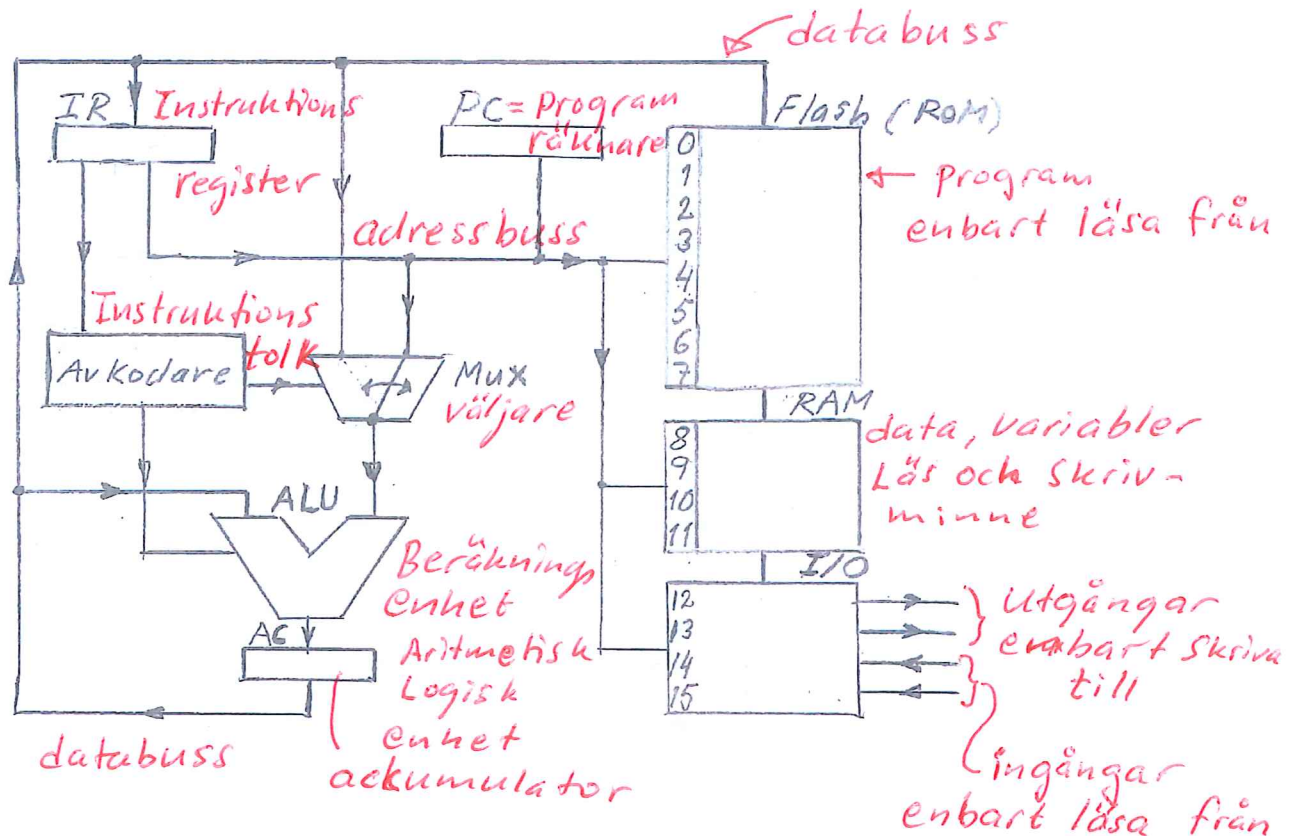 databuss
IR Instruktions
register
PC = Program
räknare
Flash (ROM)
0
1
2
3
4
5
6
7
← program
enbart läsa från
adressbuss
Instruktions
tolk
Avkodare
Mux
väljare
RAM
8
9
10
11
data, variabler
Läs och skriv-
minne
ALU
Beräknings
enhet
Aritmetisk
Logisk
enhet
AC
ackumulator
databuss
I/O
12
13
14
15
utgångar
enbart skriva
till
ingångar
enbart läsa från